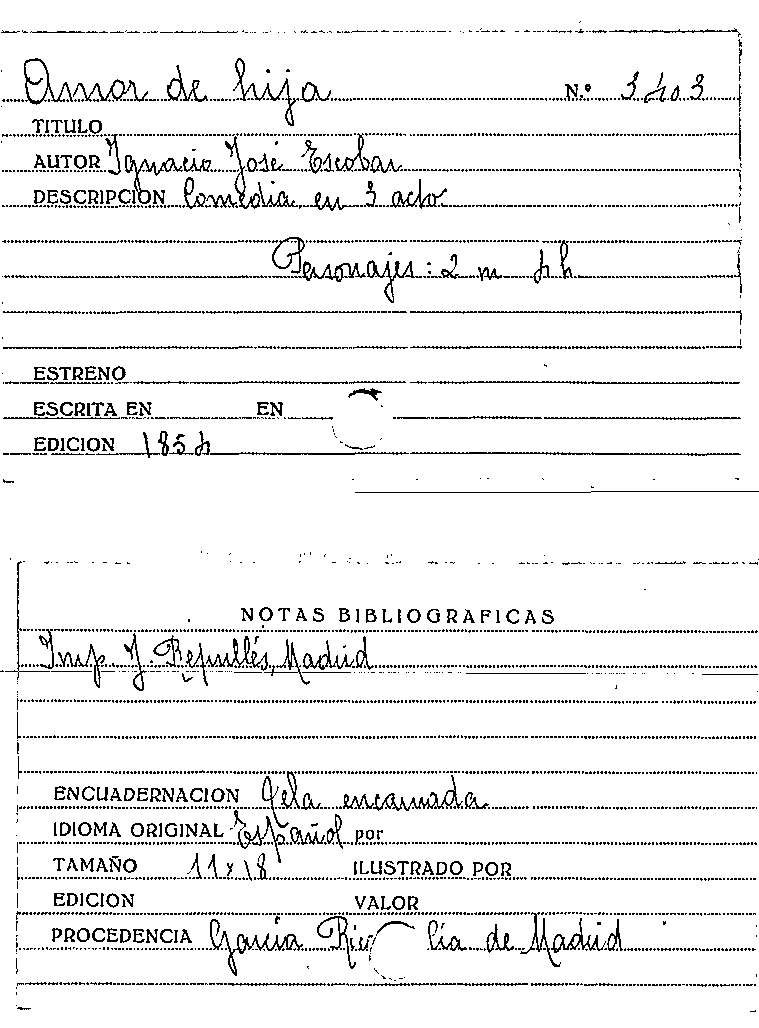 Amor de hija N.º 3403
TITULO
AUTOR Ignacio José Escobar
DESCRIPCION Comedia en 3 actos
Personajes: 2 m 4 h
ESTRENO
ESCRITA EN EN
EDICION 1854
NOTAS BIBLIOGRAFICAS
Imp. J. Repullés, Madrid
ENCUADERNACION Tela encarnada
IDIOMA ORIGINAL Español por
TAMAÑO 11 x 18 ILUSTRADO POR
EDICION VALOR
PROCEDENCIA García Rico Cía de Madrid